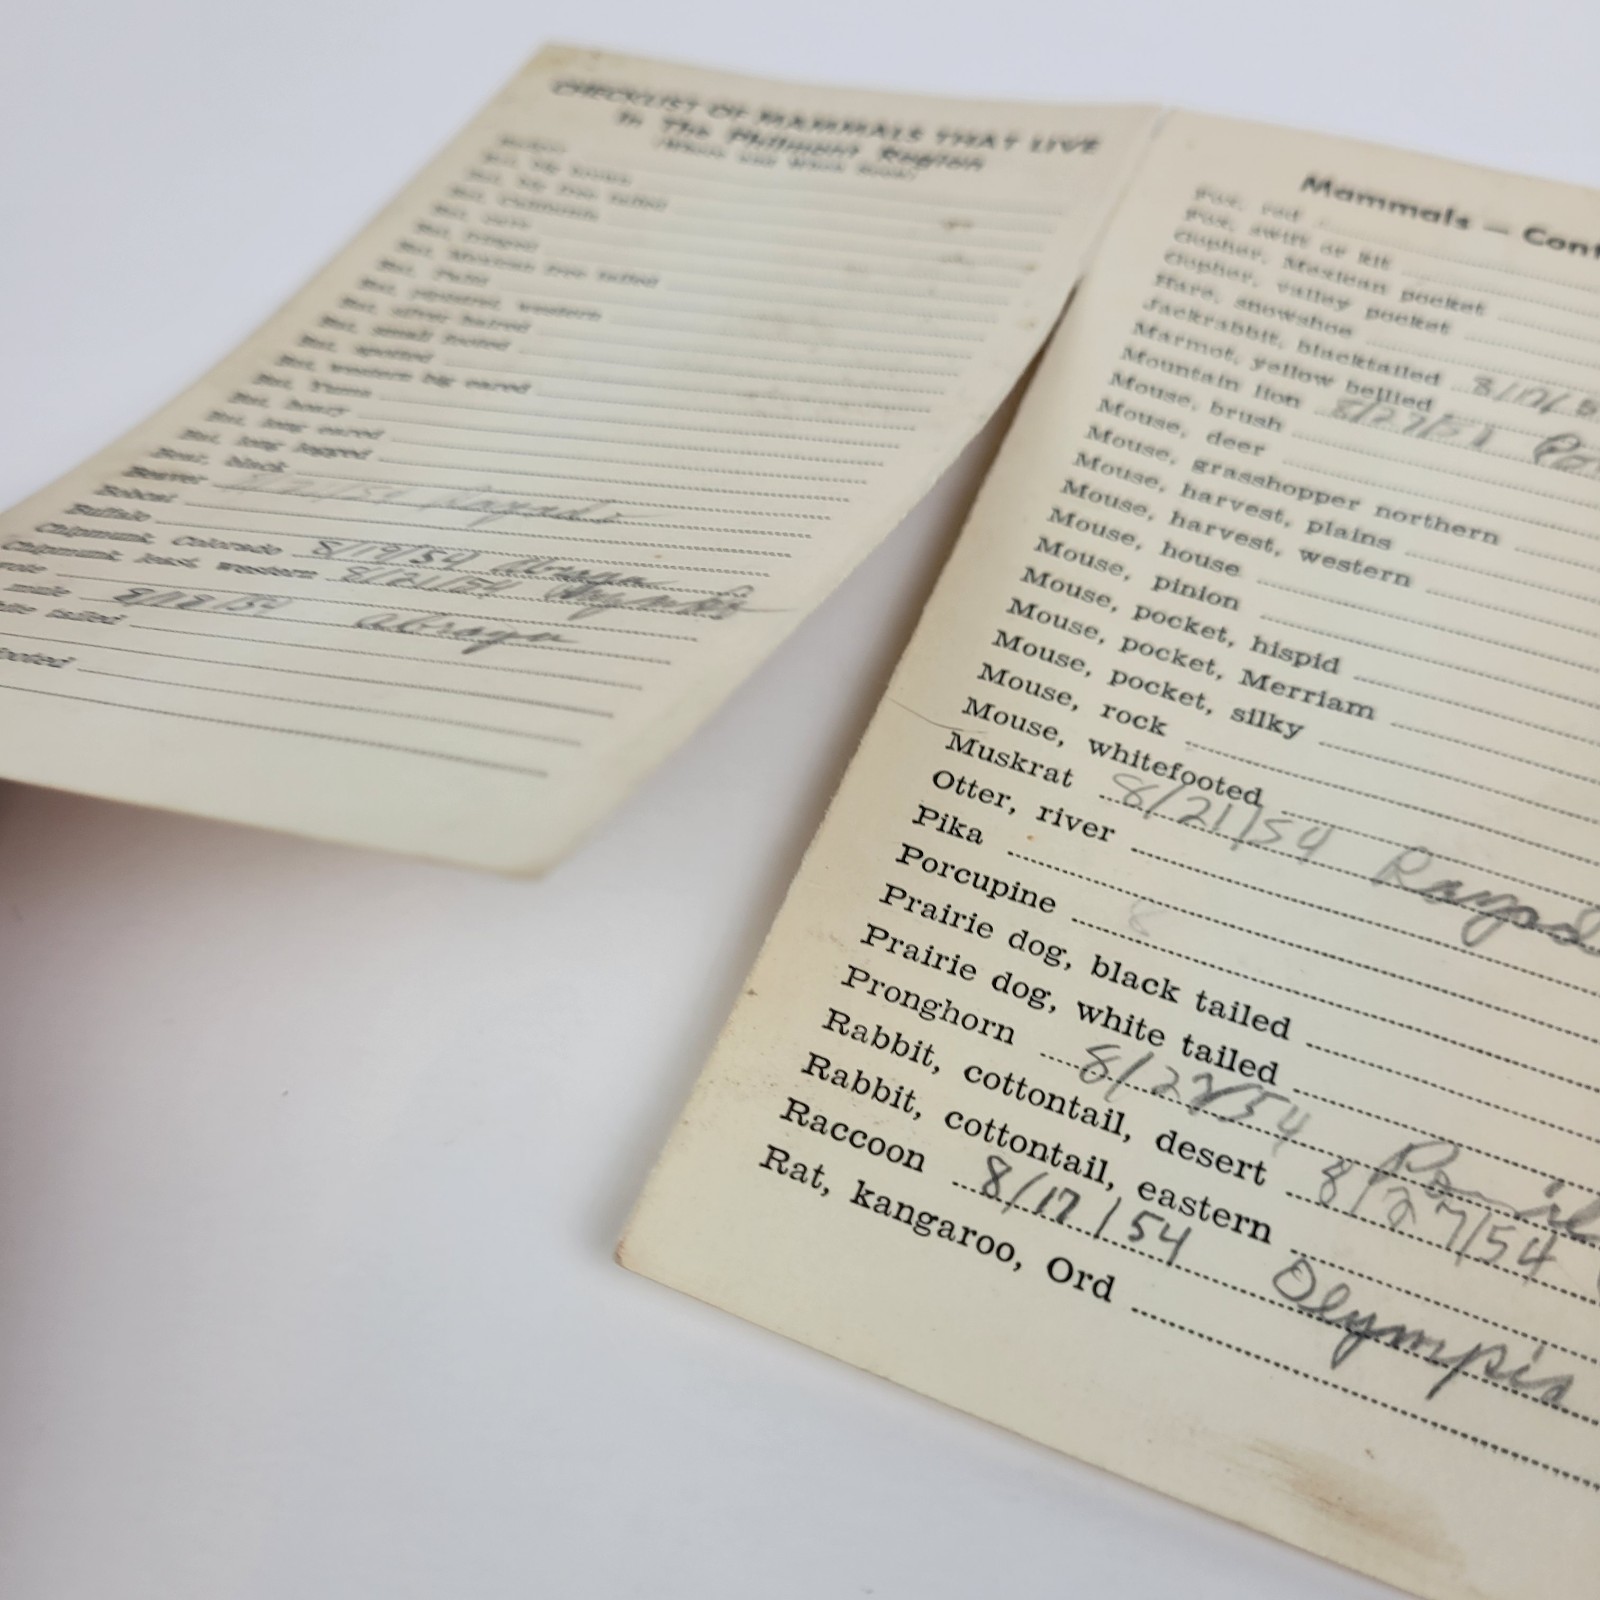 CHECKLIST OF MAMMALS THAT LIVE
In The Philmont Region
(Where and When Seen)
Badger
Bat, big brown
Bat, big free tailed
Bat, California
Bat, cave
Bat, fringed
Bat, Mexican free tailed
Bat, Pallid
Bat, pipistrel, western
Bat, silver haired
Bat, small footed
Bat, spotted
Bat, western big eared
Bat, Yuma
Bat, hoary
Bat, long eared
Bat, long legged
Bear, black
Beaver 8/21/54 Rayado
Bobcat
Buffalo
Chipmunk, Colorado 8/19/54 Abreyu
Chipmunk, least, western 8/21/54
mule 8/18/54 Abreyu
tailed
footed
Mammals — Cont
Fox, red
Fox, swift or kit
Gopher, Mexican pocket
Gopher, valley pocket
Hare, snowshoe
Jackrabbit, blacktailed 8/17/5
Marmot, yellow bellied
Mountain lion 8/27/54
Mouse, brush
Mouse, deer
Mouse, grasshopper northern
Mouse, harvest, plains
Mouse, harvest, western
Mouse, house
Mouse, pinion
Mouse, pocket, hispid
Mouse, pocket, Merriam
Mouse, pocket, silky
Mouse, rock
Mouse, whitefooted
Muskrat 8/21/54 Rayad
Otter, river
Pika
Porcupine 8
Prairie dog, black tailed
Prairie dog, white tailed
Pronghorn 8/22/54
Rabbit, cottontail, desert 8/27/54
Rabbit, cottontail, eastern
Raccoon 8/17/54 Olympia
Rat, kangaroo, Ord